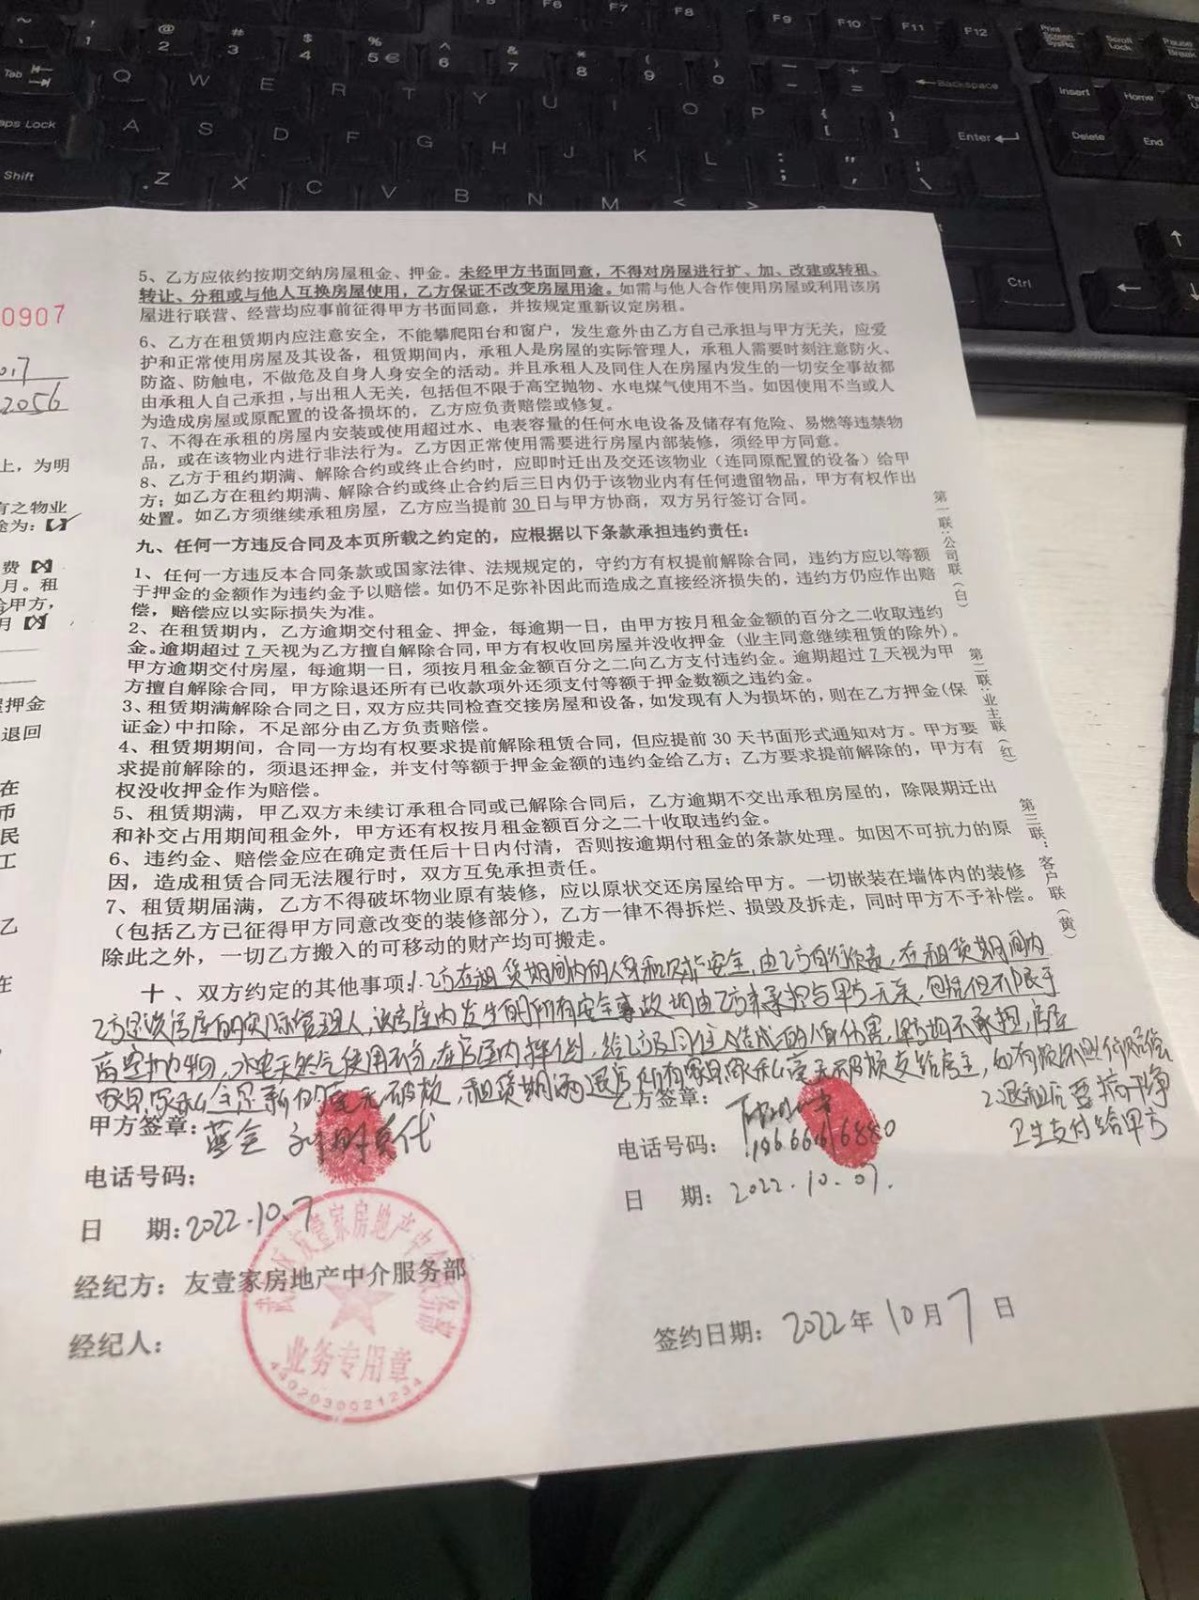 5、乙方应依约按期交纳房屋租金、押金。未经甲方书面同意，不得对房屋进行扩、加、改建或转租、
转让、分租或与他人互换房屋使用，乙方保证不改变房屋用途。如需与他人合作使用房屋或利用该房
屋进行联营、经营均应事前征得甲方书面同意，并按规定重新议定房租。
6、乙方在租赁期内应注意安全，不能攀爬阳台和窗户，发生意外由乙方自己承担与甲方无关，应爱
护和正常使用房屋及其设备，租赁期间内，承租人是房屋的实际管理人，承租人需要时刻注意防火、
防盗、防触电，不做危及自身人身安全的活动。并且承租人及同住人在房屋内发生的一切安全事故都
由承租人自己承担，与出租人无关，包括但不限于高空抛物、水电煤气使用不当。如因使用不当或人
为造成房屋或原配置的设备损坏的，乙方应负责赔偿或修复。
7、不得在承租的房屋内安装或使用超过水、电表容量的任何水电设备及储存有危险、易燃等违禁物
品，或在该物业内进行非法行为。乙方因正常使用需要进行房屋内部装修，须经甲方同意。
8、乙方于租约期满、解除合约或终止合约时，应即时迁出及交还该物业（连同原配置的设备）给甲
方；如乙方在租约期满、解除合约或终止合约后三日内仍于该物业内有任何遗留物品，甲方有权作出
处置。如乙方须继续承租房屋，乙方应当提前30日与甲方协商，双方另行签订合同。
九、任何一方违反合同及本页所载之约定的，应根据以下条款承担违约责任：
1、任何一方违反本合同条款或国家法律、法规规定的，守约方有权提前解除合同，违约方应以等额
于押金的金额作为违约金予以赔偿。如仍不足弥补因此而造成之直接经济损失的，违约方仍应作出赔
偿，赔偿应以实际损失为准。
2、在租赁期内，乙方逾期交付租金、押金，每逾期一日，由甲方按月租金金额的百分之二收取违约
金。逾期超过7天视为乙方擅自解除合同，甲方有权收回房屋并没收押金（业主同意继续租赁的除外）。
甲方逾期交付房屋，每逾期一日，须按月租金金额百分之二向乙方支付违约金。逾期超过7天视为甲
方擅自解除合同，甲方除退还所有已收款项外还须支付等额于押金数额之违约金。
3、租赁期满解除合同之日，双方应共同检查交接房屋和设备，如发现有人为损坏的，则在乙方押金（保
证金）中扣除，不足部分由乙方负责赔偿。
4、租赁期期间，合同一方均有权要求提前解除租赁合同，但应提前30天书面形式通知对方。甲方要
求提前解除的，须退还押金，并支付等额于押金金额的违约金给乙方；乙方要求提前解除的，甲方有
权没收押金作为赔偿。
5、租赁期满，甲乙双方未续订承租合同或已解除合同后，乙方逾期不交出承租房屋的，除限期迁出
和补交占用期间租金外，甲方还有权按月租金额百分之二十收取违约金。
6、违约金、赔偿金应在确定责任后十日内付清，否则按逾期付租金的条款处理。如因不可抗力的原
因，造成租赁合同无法履行时，双方互免承担责任。
7、租赁期届满，乙方不得破坏物业原有装修，应以原状交还房屋给甲方。一切嵌装在墙体内的装修
（包括乙方已征得甲方同意改变的装修部分），乙方一律不得拆烂、损毁及拆走，同时甲方不予补偿。
除此之外，一切乙方搬入的可移动的财产均可搬走。
十、双方约定的其他事项：1.乙方在租赁期间内的人身和财产安全，由乙方自行负责，在租赁期间内
乙方是该房屋的实际管理人，该房屋内发生的所有安全事故均由乙方来承担与甲方无关，包括但不限于
高空抛物，水电天然气使用不当，在房屋内摔倒，给乙方及同住人造成的人身伤害，甲方均不承担，房屋
家具家私全是新的毫无破损，租赁期满退房所有家具家私毫无破损交给房主，如有损坏照价赔偿
2.退租后要搞干净
卫生支付给甲方
甲方签章：蓝全 代
乙方签章：
电话号码：
电话号码：
日 期：2022.10.7
日 期：2022.10.07.
经纪方：友壹家房地产中介服务部
经纪人：
签约日期：2022年10月7日
友壹家房地产中介服务部
业务专用章
4402030021234
第一联：公司联（白）
第二联：业主联（红）
第三联：客户联（黄）
0907
2056
上，为明
有之物业
途为：【✓】
费
月。租
给甲方，
月
押金
退回
在
币
民
工
乙
在
Tab
Caps Lock
Shift
Q W E R T Y U I O P
A S D F G H J K L
Z X C V B N M
F6 F7 F8 F9 F10 F11 F12
Backspace
Enter
Ctrl
Print Screen SysRq
Scroll Lock
Pause Break
Insert
Home
Delete
End